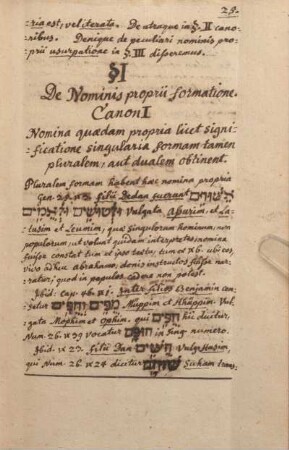 29.
ria est, vel iterata. De utraque in §. II cano-
ribus. Denique de peculiari nominis pro-
prii usurpatione in §. III disseremus.
§ I
De Nominis proprii formatione.
Canon I
Nomina quædam propria licet signi-
ficatione singularia formam tamen
pluralem, aut dualem obtinent.
Pluralem formam habent hæc nomina propria
Gen. filii Dedan fuerunt אשורים
ולטושים ולאמים Vulgata Asurim et La-
tusim et Leumim, quæ singulorum hominum, non
populorum, ut volunt quidam interpretes nomina
fuisse constat tum ex ipso textu, tum ex
vivo adhuc abrahamo, donis instructos fuisse nar-
ratur; quod in populos cadere non potest.
Ibid. Cap. 46 inter filios Benjamin cen-
setur מפים וחפים Muppim et Chuppim. Vul-
gata Mophim et Ophim, qui חפים hic dicitur,
Num. 26. 39 vocatur חופם in sing numero.
Ibid. 23. filii Dan חשים Vulg. Husim,
qui Num. 26. 24 dicitur שוחם Suham trans-